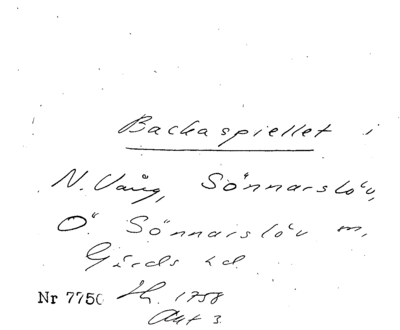 Backaspiellet i
N. Vång, Sönnarslöv,
Ö Sönnarslöv m,
Gärds hd
Nr 7750 Sk. 1758
Akt 3.